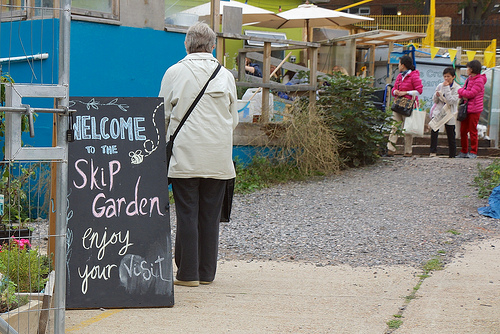 WELCOME
TO THE
SKiP
Garden
enjoy
your visit